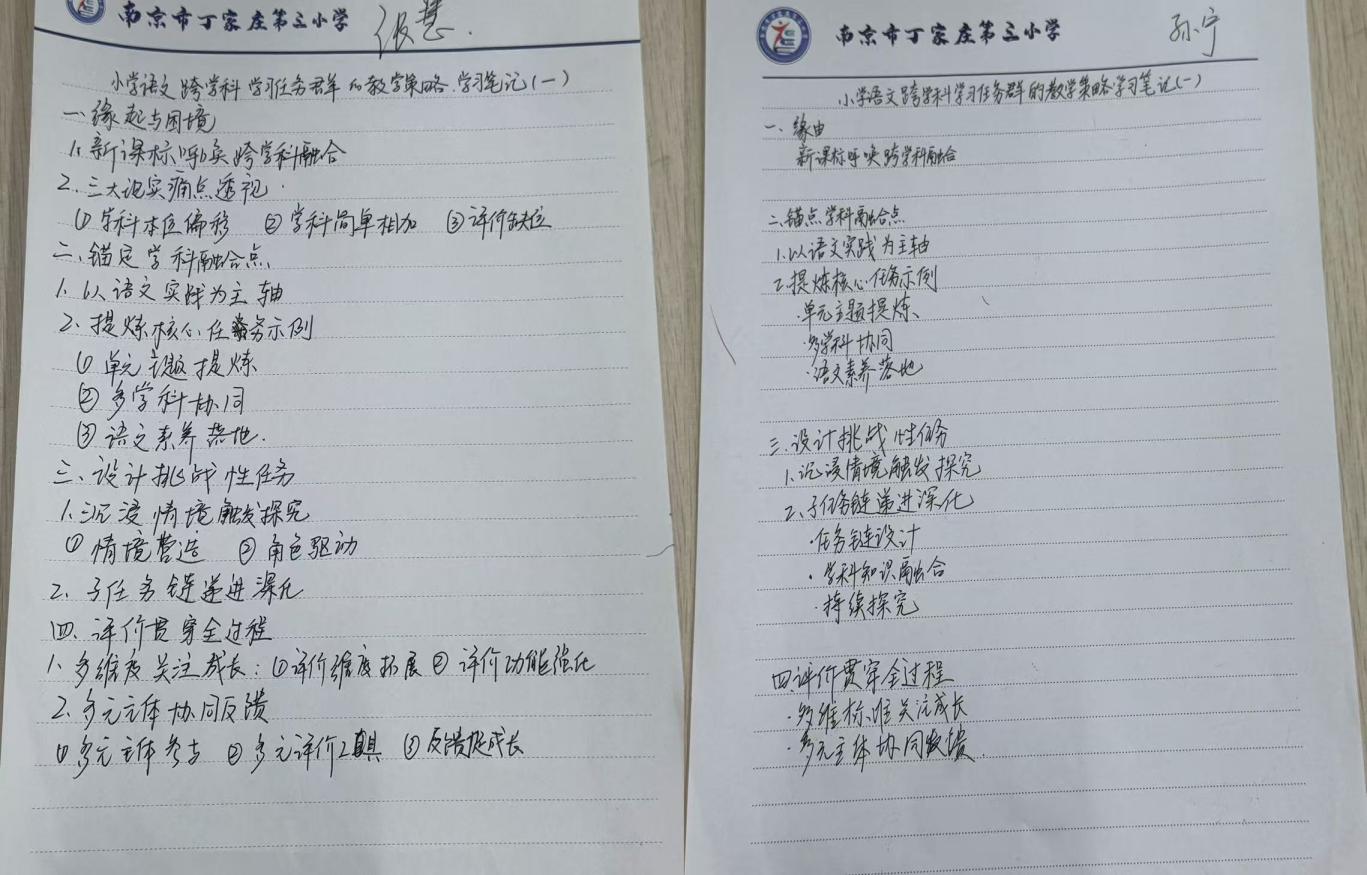 南京市丁家庄第三小学
张慧.
小学语文跨学科学习任务群的教学策略学习笔记(一)
一、缘起与困境
1.新课标呼唤跨学科融合
2.三大现实痛点透视.
①学科本位偏移 ②学科简单相加 ③评价缺位
二、锚定学科融合点
1.以语文实践为主轴
2.提炼核心任务示例
①单元主题提炼
②多学科协同
③语文素养落地.
三、设计挑战性任务
1.沉浸情境触发探究
①情境营造 ②角色驱动
2.子任务链递进深化
四、评价贯穿全过程
1.多维度关注成长:①评价维度拓展②评价功能强化
2.多元主体协同反馈
①多元主体参与 ②多元评价工具 ③反馈促成长
南京市丁家庄第三小学
孙宁
小学语文跨学科学习任务群的教学策略学习笔记(一)
一、缘由
新课标呼唤跨学科融合
二、锚点学科融合点
1.以语文实践为主轴
2.提炼核心任务示例
·单元主题提炼
·多学科协同
·语文素养落地
三、设计挑战性任务
1.沉浸情境触发探究
2.子任务链递进深化
·任务链设计
·学科知识融合
·持续探究
四、评价贯穿全过程
·多维标准关注成长
·多元主体协同反馈.